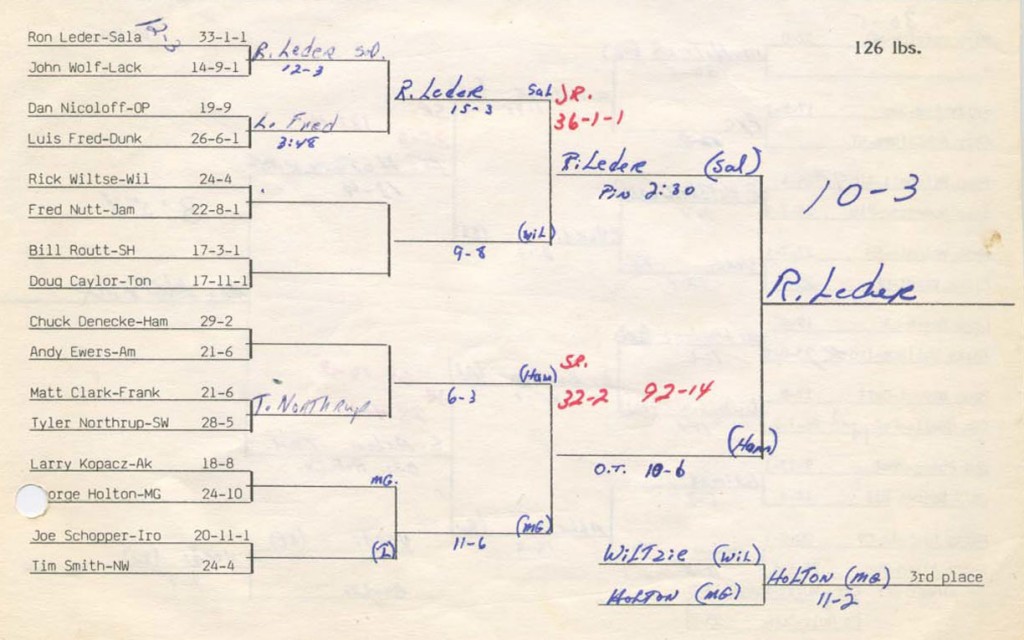 126 lbs.
Ron Leder-Sala 33-1-1
12-3
John Wolf-Lack 14-9-1
R. Leder Sal.
12-3
Dan Nicoloff-OP 19-9
Luis Fred-Dunk 26-6-1
L. Fred
3:48
R. Leder Sal
15-3
JR.
36-1-1
Rick Wiltse-Wil 24-4
Fred Nutt-Jam 22-8-1
Bill Routt-SH 17-3-1
Doug Caylor-Ton 17-11-1
(Wil)
9-8
R. Leder (Sal)
Pin 2:30
10-3
R. Leder
Chuck Denecke-Ham 29-2
Andy Ewers-Am 21-6
Matt Clark-Frank 21-6
Tyler Northrup-SW 28-5
T. Northrup
(Ham)
6-3
SR.
32-2 92-14
Larry Kopacz-Ak 18-8
orge Holton-MG 24-10
MG.
Joe Schopper-Iro 20-11-1
Tim Smith-NW 24-4
(I)
(MG)
11-6
(Ham)
O.T. 10-6
Wiltzie (Wil)
Holton (MG)
Holton (MG) 3rd place
11-2